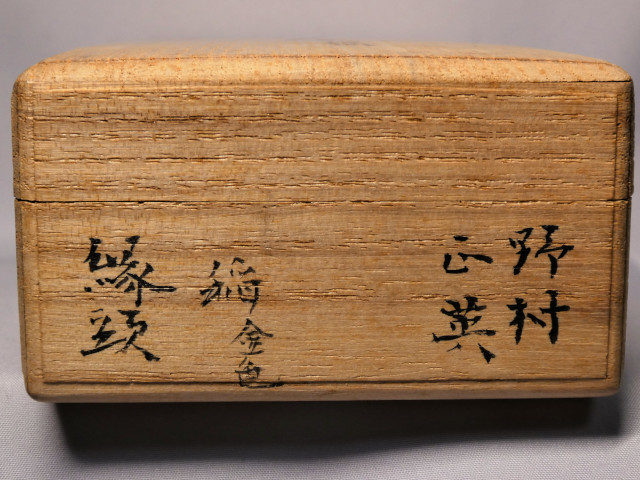 野村
正英
稲金色
縁頭